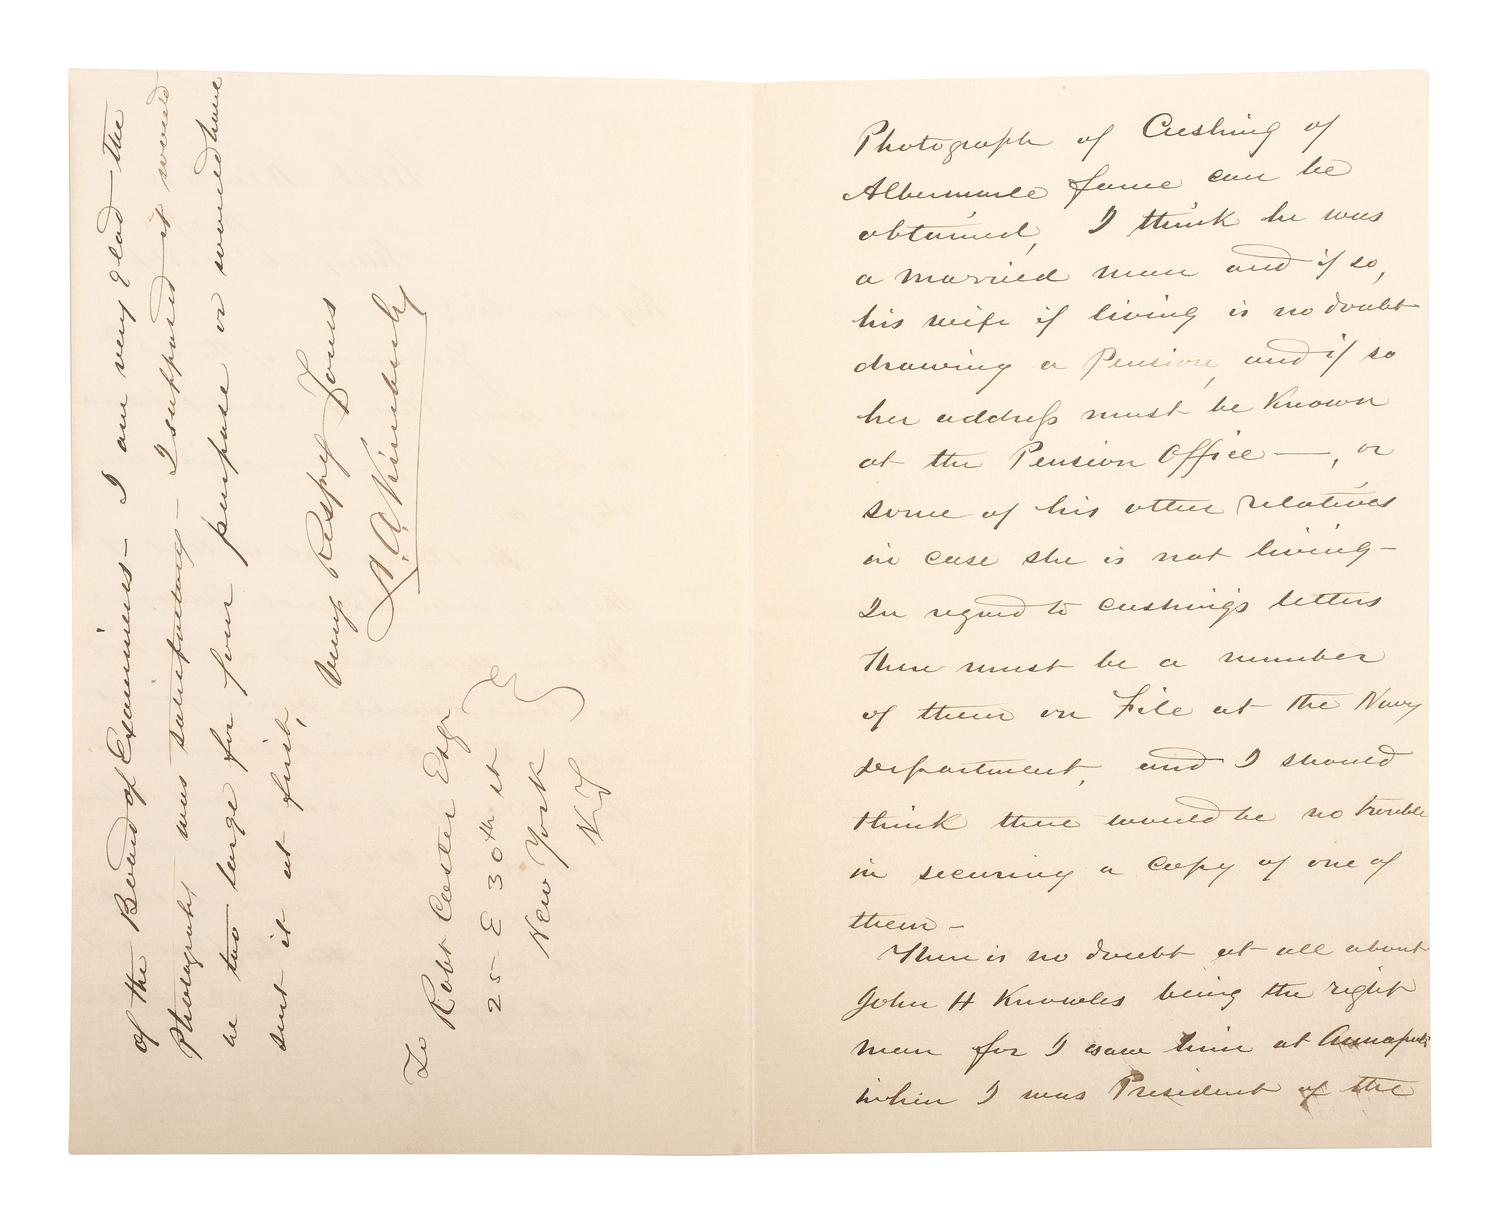 Photograph of Cushing of
Albermarle fame can be
obtained, I think he was
a married man and if so,
his wife if living is no doubt
drawing a Pension, and if so
her address must be Known
at the Pension Office —, or
some of his other relatives
in case she is not living –
In regard to Cushing's letters
there must be a number
of them on File at the Navy
Department, and I should
think there would be no trouble
in securing a copy of one of
them –
There is no doubt at all about
John H Knowles being the right
man for I saw him at Annapolis
when I was President of the
of the Board of Examiners – I am very glad the
Photograph was satisfactory – I supposed it would
be too large for your purpose or would have
sent it at first,
Very Respy Yours
L. A. Kimberly
To Robt Coster Esqr
25 E 30th st
New York
N.Y